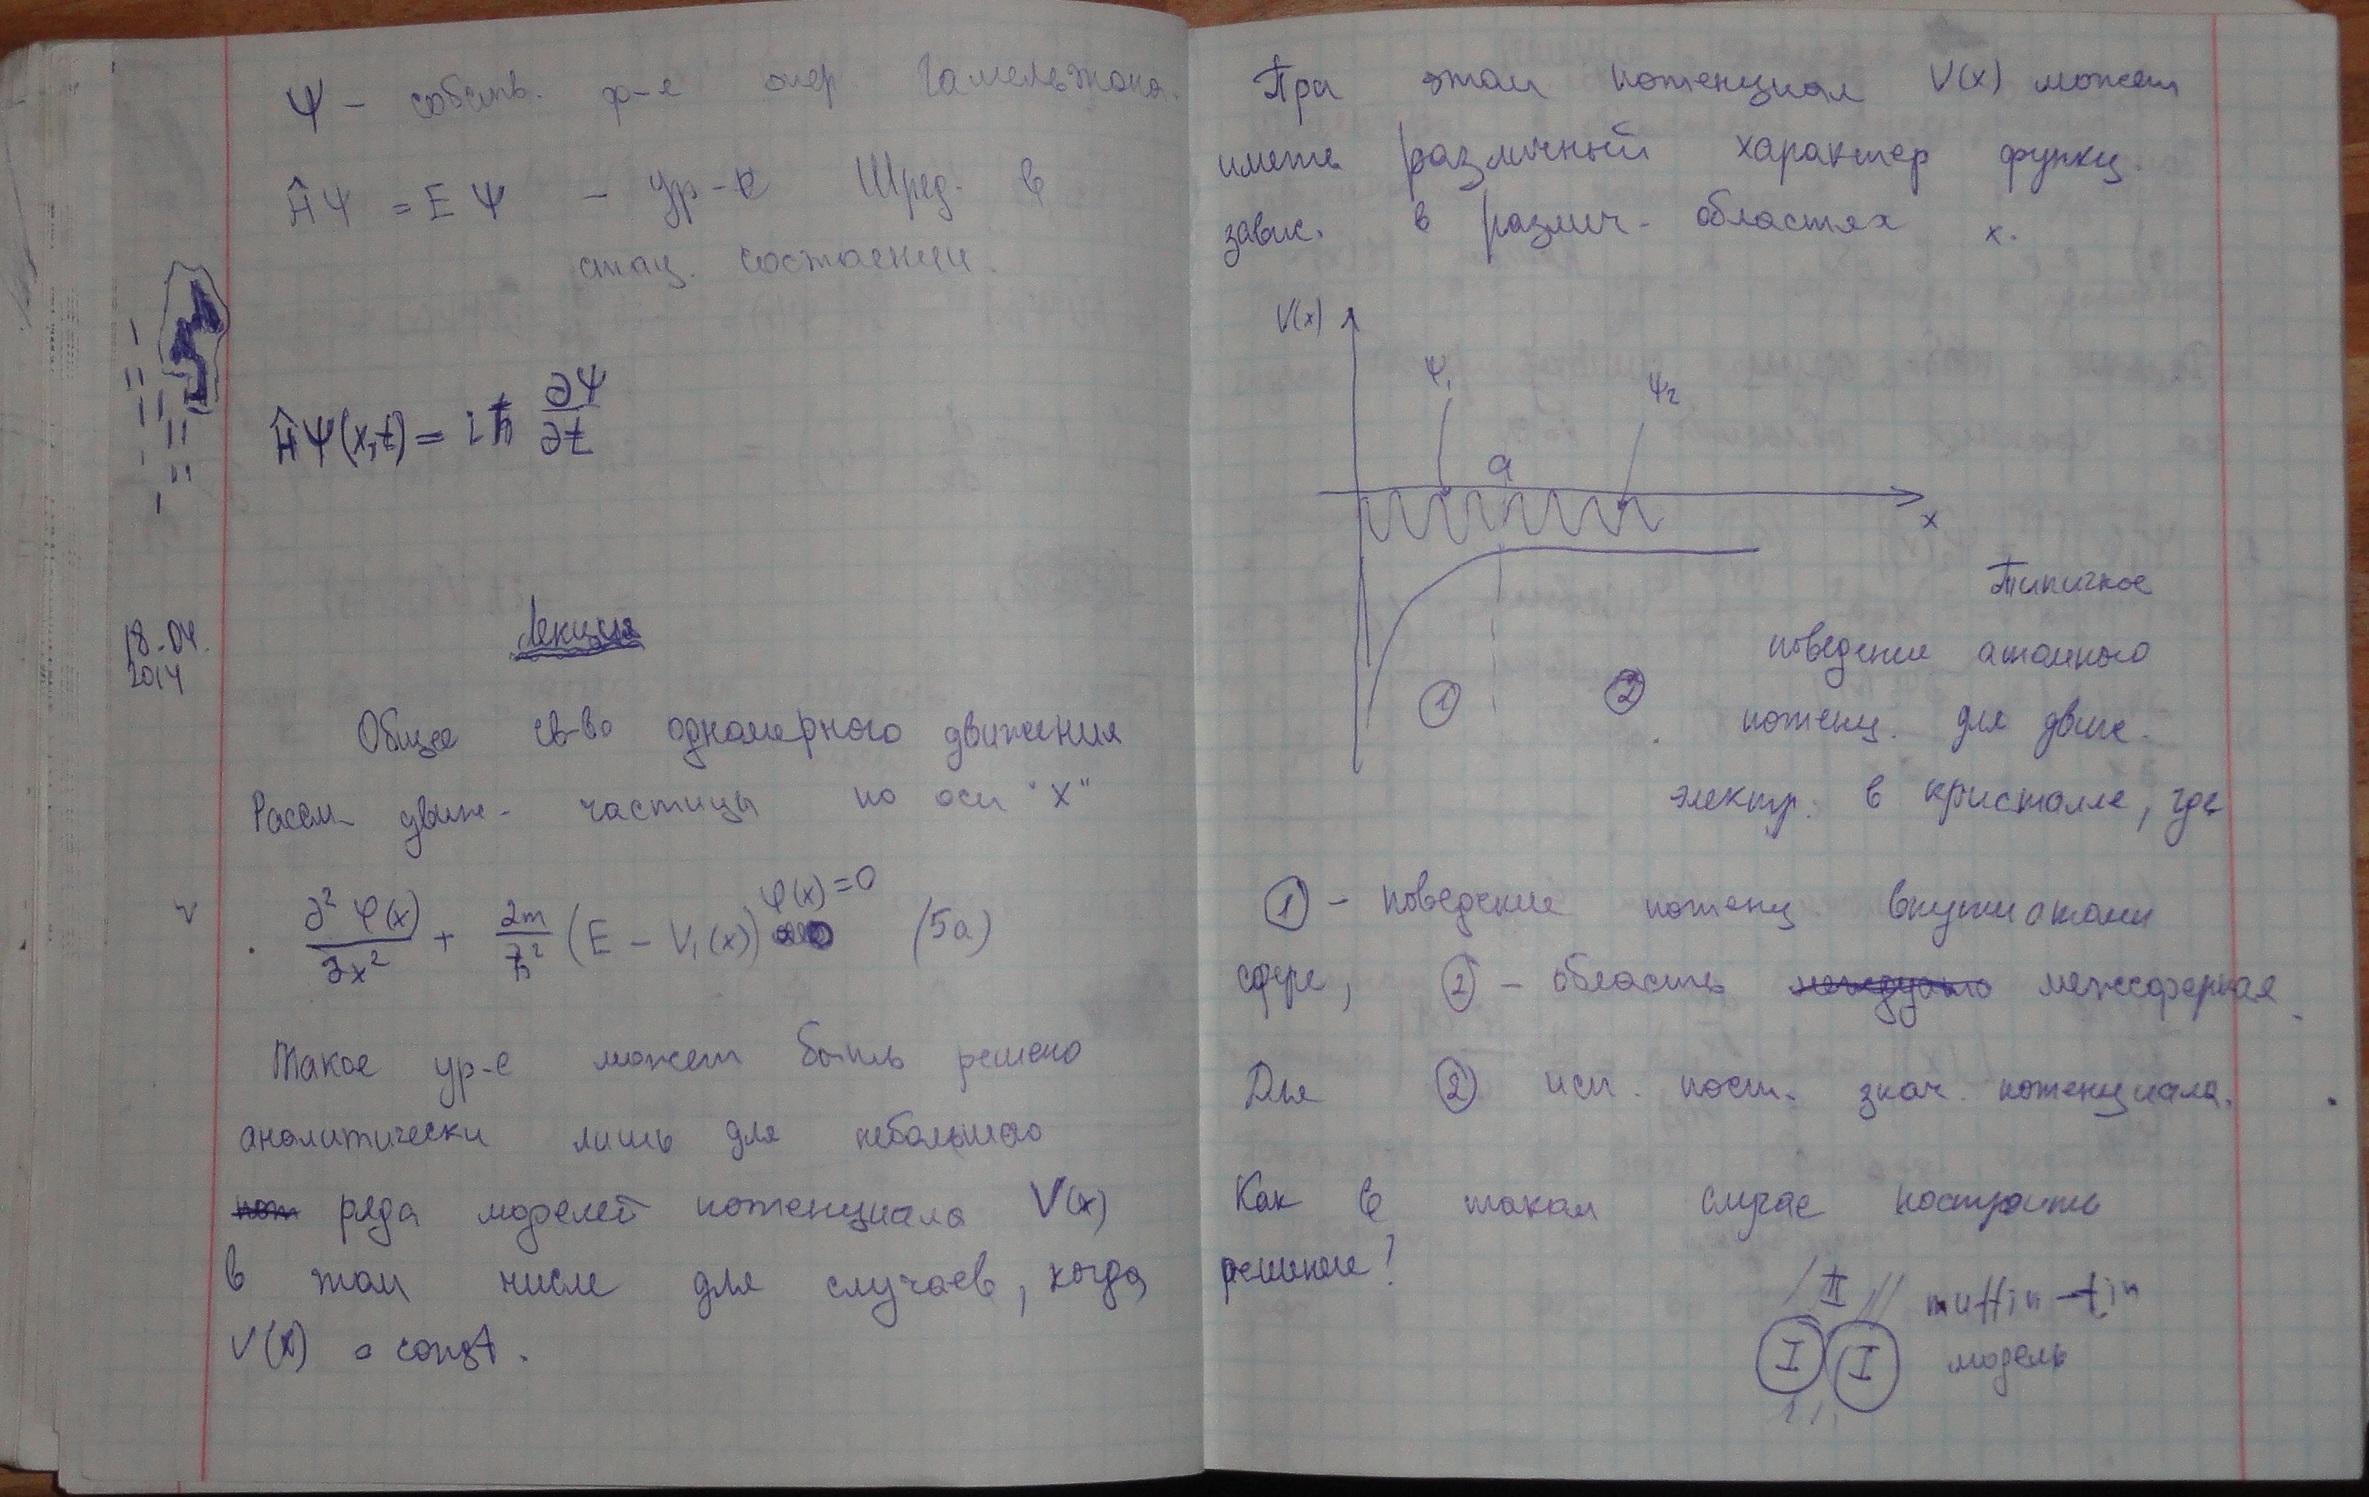 Ψ – собств. ф-е опер Гамельтона.
ĤΨ = EΨ – ур-е Шред. в
стац. состоении.
ĤΨ(x,t) = iħ ∂Ψ/∂t
18.04.
2014
Лекция
Общее св-во одномерного движения
Рассм движ- частицы по оси "X"
∂²φ(x)/∂x² + 2m/ħ² (E – V₁(x)) φ(x)=0 (5а)
Такое ур-е может быть решено
аналитически лишь для небольшого
ряда моделей потенциала V(x)
в том числе для случаев, когда
V(x) = const.
При этом потенциал V(x) может
иметь различный характер функц.
завис. в различ- областях x.
V(x)
φ₁
φ₂
a
x
① ②
Типичное
поведение атомного
потенц. для движ.
электр. в кристалле, где
① – поведение потенц внутри атомн
сфере, ② – область межсферная.
Для ② исп. пост. знач. потенциала.
Как в таком случае построить
решение?
II
I I
muffin-tin
модель